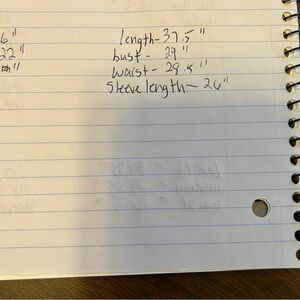 6"
22"
length - 37.5"
bust - 29"
waist - 28.5"
Sleeve length - 26"